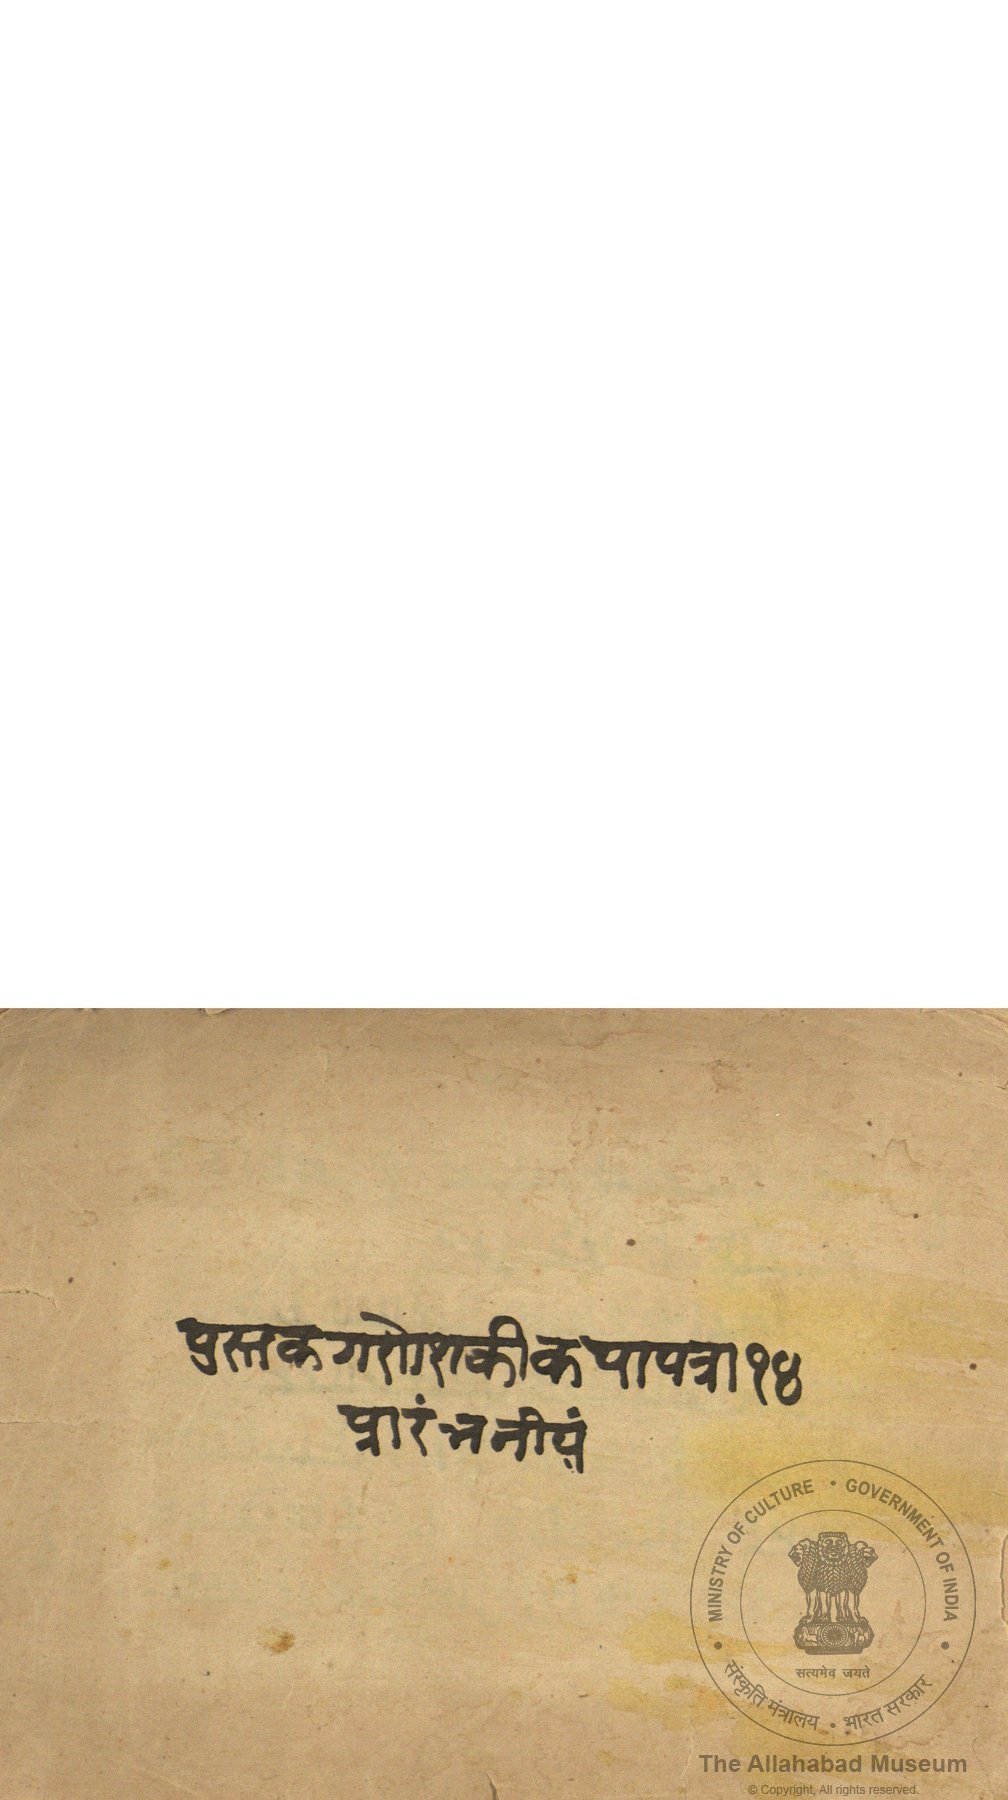 पुस्तक गणेशकी कथा पत्रा १४
प्रारंभनीयं
MINISTRY OF CULTURE • GOVERNMENT OF INDIA
सत्यमेव जयते
संस्कृति मंत्रालय • भारत सरकार
The Allahabad Museum
© Copyright, All rights reserved.